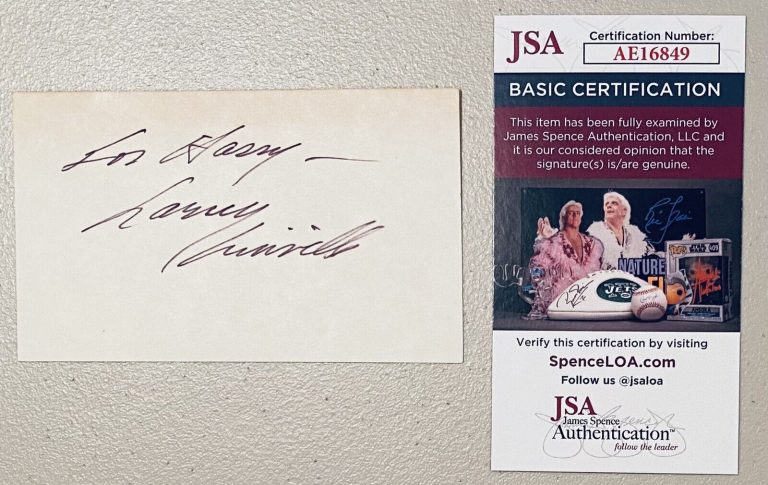 For Harry —
Larney
JSA
Certification Number:
AE16849
BASIC CERTIFICATION
This item has been fully examined by
James Spence Authentication, LLC and
it is our considered opinion that the
signature(s) is/are genuine.
NATURE
JETS
STAR WARS
Verify this certification by visiting
SpenceLOA.com
Follow us @jsaloa
JSA
James Spence
Authentication™
follow the leader